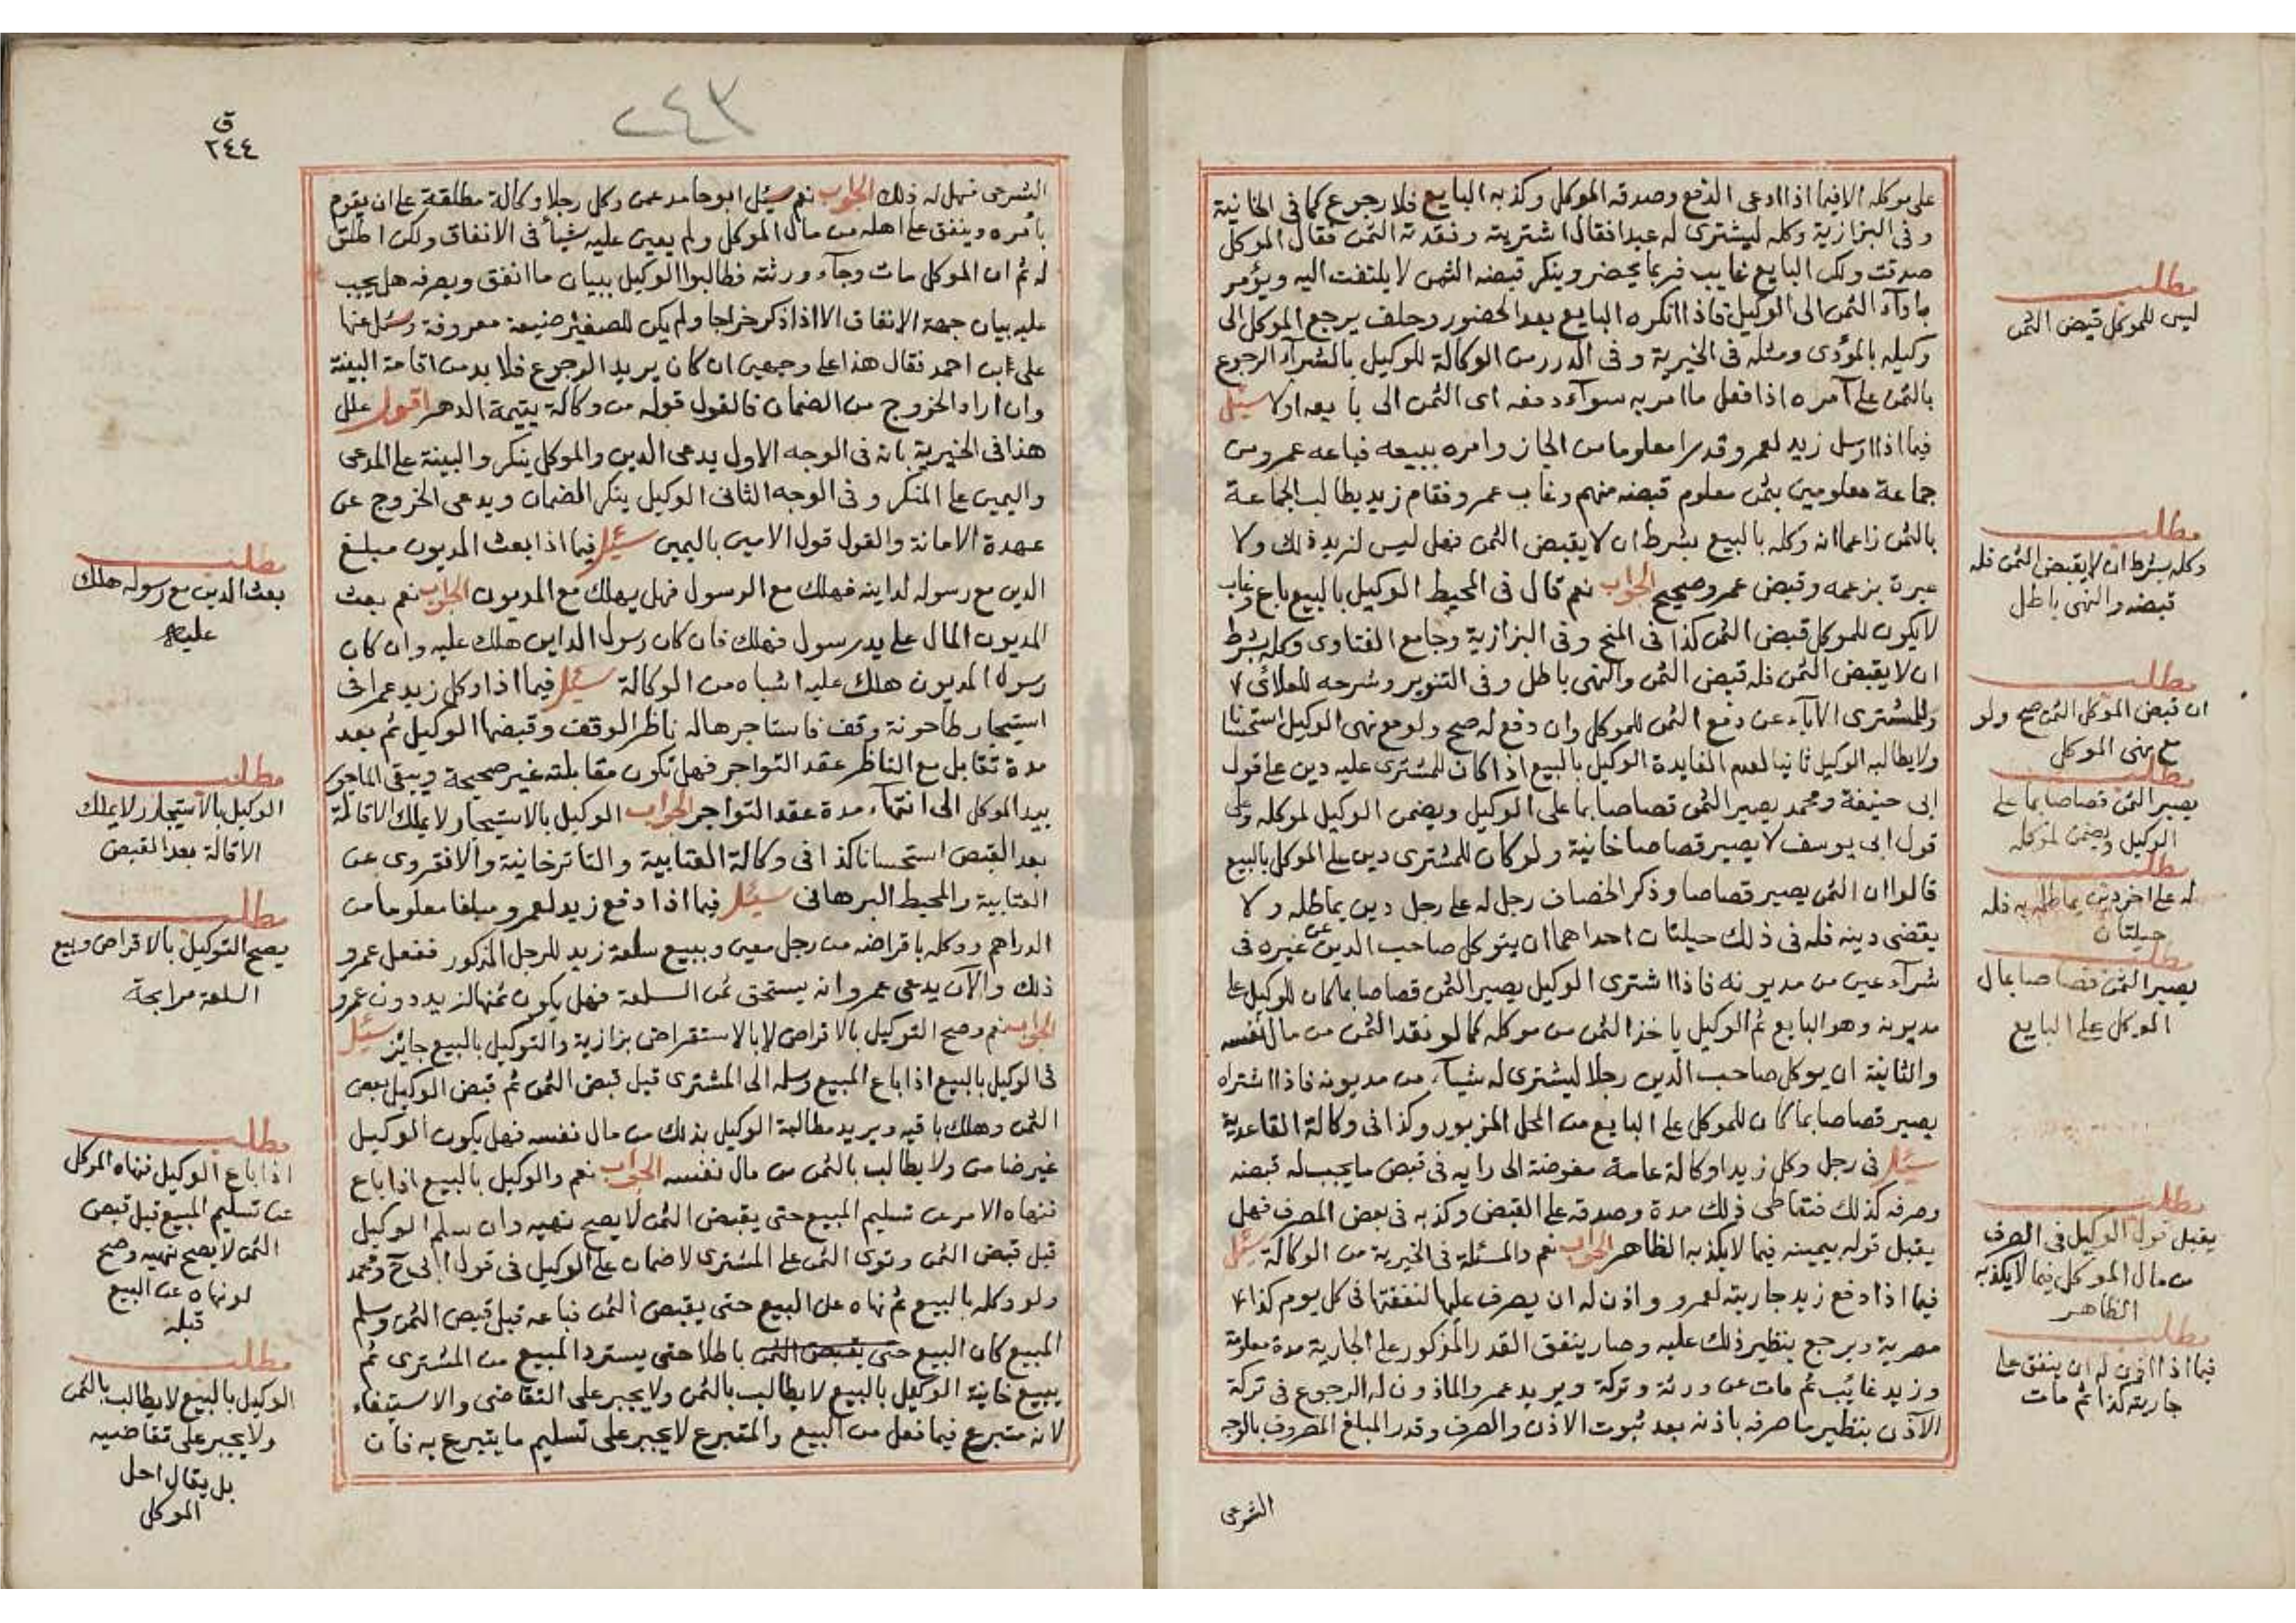 على موكله الا فيما اذا ادعى الدفع وصدقه الموكل وكذبه البايع فلا رجوع كما فى الخانية
وفى البزازية وكله ليشترى له عبدا فقال اشتريته ونقدته الثمن فقال الموكل
صدقت ولكن البايع غايب فربما يحضر وينكر قبضه الثمن لا يلتفت اليه ويؤمر
بادآء الثمن الى الوكيل فاذا انكره البايع بعد الحضور وحلف يرجع الموكل الى
وكيله بالمؤدى ومثله فى الخيرية وفى الدرر من الوكالة للوكيل بالشرآء الرجوع
بالثمن على آمره اذا فعل ما امر به سوآء دفعه اى الثمن الى بايعه اولا سئل
فيما اذا ارسل زيد لعمرو قدرا معلوما من الجاز وامره ببيعه فباعه عمرو من
جماعة معلومين بثمن معلوم قبضه منهم وغاب عمرو فقام زيد يطالب الجماعة
بالثمن زاعما انه وكله بالبيع بشرط ان لا يقبض الثمن فهل ليس لزيد ذلك ولا
عبرة بزعمه وقبض عمرو صحيح الجواب نعم قال فى المحيط الوكيل بالبيع باع وغاب
لا يكون للموكل قبض الثمن كذا فى المنح وفى البزازية وجامع الفتاوى وكله بشرط
ان لا يقبض الثمن فله قبض الثمن والنهى باطل وفى التنوير وشرحه للعلائى ٧
وللمشترى الابآء عن دفع الثمن للموكل وان دفع له صح ولو مع نهى الوكيل استحسانا
ولا يطالبه الوكيل ثانيا لعدم الفايدة الوكيل بالبيع اذا كان للمشترى عليه دين على قول
ابى حنيفة ومحمد يصير الثمن قصاصا بما على الوكيل ويضمن الوكيل لموكله وعلى
قول ابى يوسف لا يصير قصاصا خانية ولو كان للمشترى دين على الموكل بالبيع
قالوا ان الثمن يصير قصاصا وذكر الخصاف رجل له على رجل دين يماطله ولا
يقضى دينه فله فى ذلك حيلتان احداهما ان يتوكل صاحب الدين عن غيره فى
شرآء عين من مديونه فاذا اشترى الوكيل يصير الثمن قصاصا بما كان للوكيل على
مديونه وهو البايع ثم الوكيل ياخذ الثمن من موكله كما لو نقد الثمن من مال نفسه
والثانية ان يوكل صاحب الدين رجلا ليشترى له شيأ من مديونه فاذا اشتراه
يصير قصاصا بما كان للموكل على البايع من المحل المزبور وكذا فى وكالة القاعدية
سئل فى رجل وكل زيدا وكالة عامة مفوضة الى رايه فى قبض ما يجب له قبضه
وصرفه كذلك فتعاطى ذلك مدة وصدقه على القبض وكذبه فى بعض المصرف فهل
يقبل قوله بيمينه فيما لا يكذبه الظاهر الجواب نعم والمسئلة فى الخيرية من الوكالة سئل
فيما اذا دفع زيد جاريته لعمرو واذن له ان يصرف عليها لنفقتها فى كل يوم كذا
مصرية ويرجع بنظير ذلك عليه وصار ينفق القدر المذكور على الجارية مدة معلومة
وزيد غائب ثم مات عن ورثة وتركة ويريد عمرو الماذون له الرجوع فى تركة
الآذن بنظير ما صرفه باذنه بعد ثبوت الاذن والصرف وقدر المبلغ المصروف بالوجه
الشرعى
مطلب
ليس للموكل قبض الثمن
مطلب
وكله بشرط ان لا يقبض الثمن فله
قبضه والنهى باطل
مطلب
ان قبض الموكل الثمن صح ولو
مع نهى الموكل
مطلب
يصير الثمن قصاصا بما على
الوكيل ويضمن لموكله
مطلب
له على اخر دين يماطله به فله
حيلتان
مطلب
يصير الثمن قصاصا بمال
الموكل على البايع
مطلب
يقبل قول الوكيل فى الصرف
من مال الموكل فيما لا يكذبه
الظاهر
مطلب
فيما اذا اذن له ان ينفق على
جاريته كذا ثم مات
٢٤٣
ق
٢٤٤
الشرعى فهل له ذلك الجواب نعم سئل ابو حامد عمن وكل رجلا وكالة مطلقة على ان يقوم
بامره وينفق على اهله من مال الموكل ولم يعين عليه شيأ فى الانفاق ولكن اطلق
له ثم ان الموكل مات وجآء ورثته فطالبوا الوكيل ببيان ما انفق ويصرفه هل يجب
عليه بيان جهة الانفاق الا اذا ذكر خراجا ولم يكن للصغير ضيعة معروفة وسئل عنها
على ابن احمد فقال هذا على وجهين ان كان يريد الرجوع فلا بد من اقامة البينة
وان اراد الخروج من الضمان فالقول قوله من وكالة يتيمة الدهر اقول علل
هذا فى الخيرية بانه فى الوجه الاول يدعى الدين والموكل ينكر والبينة على المدعى
واليمين على المنكر وفى الوجه الثانى الوكيل ينكر الضمان ويدعى الخروج عن
عهدة الامانة والقول قول الامين باليمين سئل فيما اذا بعث المديون مبلغ
الدين مع رسوله لداينه فهلك مع الرسول فهل يهلك مع المديون الجواب نعم بعث
المديون المال على يد رسول فهلك فان كان رسول الداين هلك عليه وان كان
رسول المديون هلك عليه اشباه من الوكالة سئل فيما اذا وكل زيد عمرا فى
استيجار طاحونة وقف فاستاجرها له ناظر الوقف وقبضها الوكيل ثم بعد
مدة تقايل مع الناظر عقد التواجر فهل تكون مقايلته غير صحيحة ويبقى الماجور
بيد الموكل الى انتهآء مدة عقد التواجر الجواب الوكيل بالاستيجار لا يملك الاقالة
بعد القبض استحسانا كذا فى وكالة العتابية والتاترخانية والانقروى عن
العتابية والمحيط البرهانى سئل فيما اذا دفع زيد لعمرو مبلغا معلوما من
الدراهم ووكله باقراضه من رجل معين وببيع سلعة زيد للرجل المذكور ففعل عمرو
ذلك والآن يدعى عمرو انه يستحق ثمن السلعة فهل يكون ثمنها لزيد دون عمرو
الجواب نعم وصح التوكيل بالاقراض لا بالاستقراض بزازية والتوكيل بالبيع جائز سئل
فى الوكيل بالبيع اذا باع المبيع وسلمه الى المشترى قبل قبض الثمن ثم قبض الوكيل بعض
الثمن وهلك باقيه ويريد مطالبة الوكيل بذلك من مال نفسه فهل يكون الوكيل
غير ضامن ولا يطالب بالثمن من مال نفسه الجواب نعم والوكيل بالبيع اذا باع
فنهاه الامر عن تسليم المبيع حتى يقبض الثمن لا يصح نهيه وان سلم الوكيل
قبل قبض الثمن وتوى الثمن على المشترى لا ضمان على الوكيل فى قول ابى ح ومحمد
ولو وكله بالبيع ثم نهاه عن البيع حتى يقبض الثمن فباعه قبل قبض الثمن وسلم
المبيع كان البيع حتى يقبض الثمن باطلا حتى يسترد المبيع من المشترى ثم
يبيع خانية الوكيل بالبيع لا يطالب بالثمن ولا يجبر على التقاضى والاستيفاء
لانه متبرع فيما فعل من البيع والمتبرع لا يجبر على تسليم ما يتبرع به فان
مطلب
بعث الدين مع رسوله هلك
عليه
مطلب
الوكيل بالاستيجار لا يملك
الاقالة بعد القبض
مطلب
يصح التوكيل بالاقراض وبيع
السلعة مرابحة
مطلب
اذا باع الوكيل فنهاه الموكل
عن تسليم المبيع قبل قبض
الثمن لا يصح نهيه وصح
لو نهاه عن البيع
قبله
مطلب
الوكيل بالبيع لا يطالب بالثمن
ولا يجبر على تقاضيه
بل يقال احل
الموكل